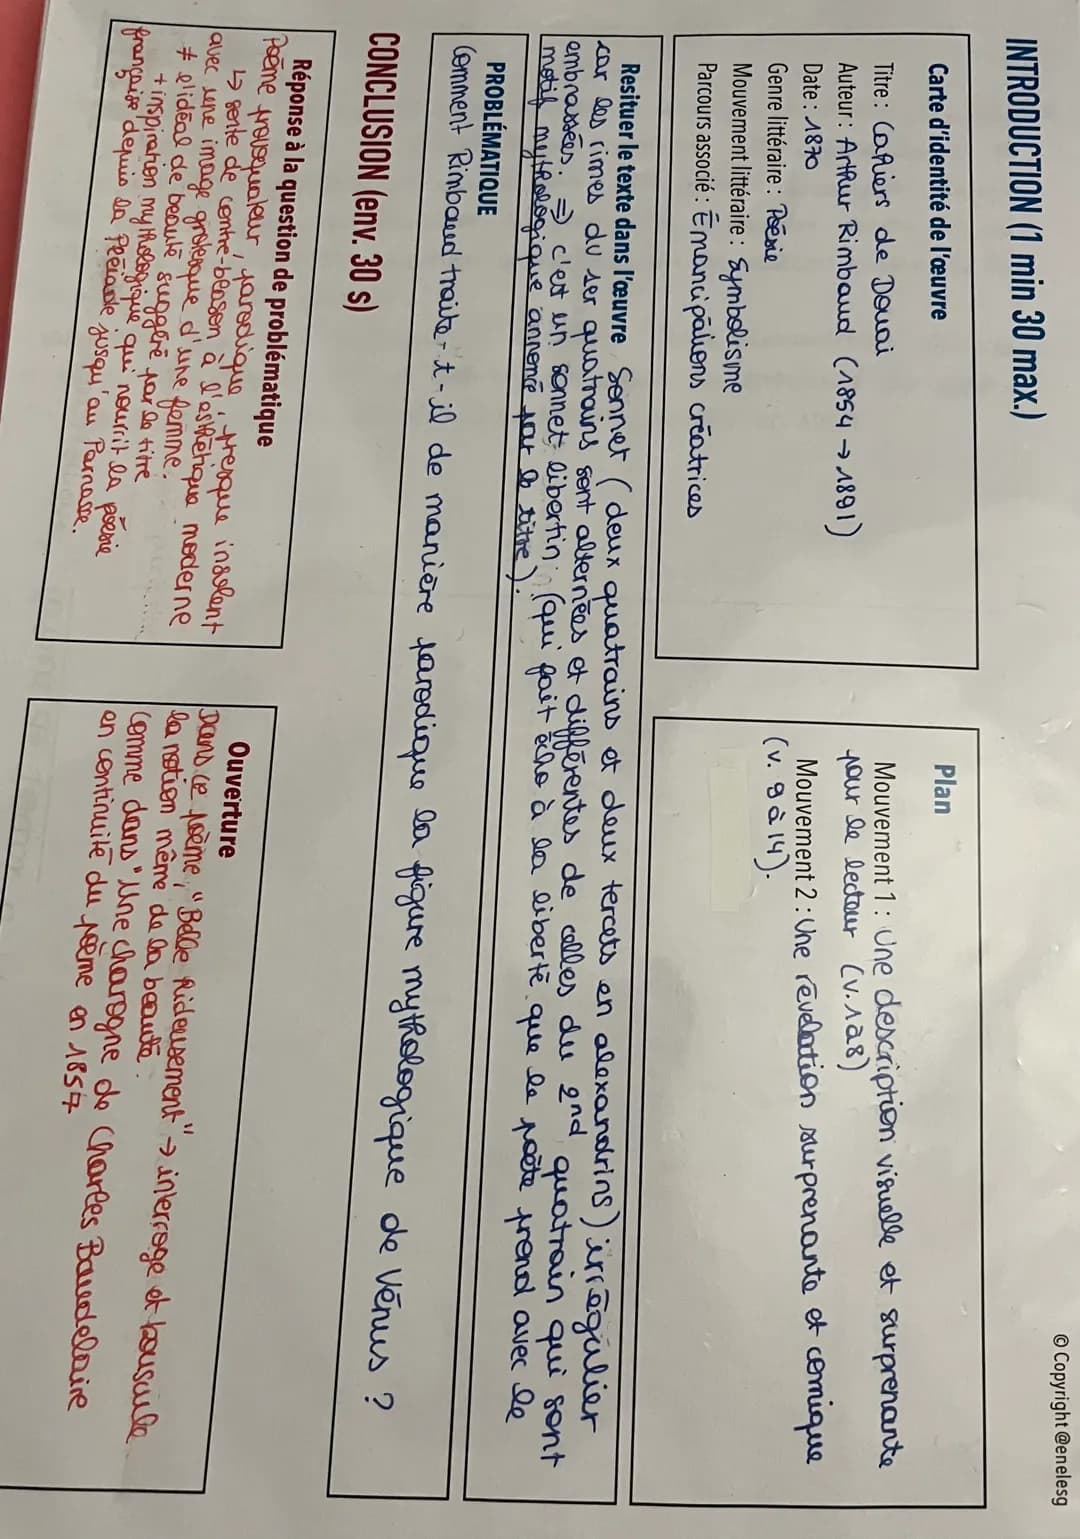 © Copyright @enelesg
INTRODUCTION (1 min 30 max.)
Carte d'identité de l'œuvre
Titre : Cahiers de Douai
Auteur : Arthur Rimbaud (1854 → 1891)
Date : 1870
Genre littéraire : Poésie
Mouvement littéraire : Symbolisme
Parcours associé : Émancipations créatrices
Plan
Mouvement 1 : Une description visuelle et surprenante
pour le lecteur (v.1 à 8)
Mouvement 2 : Une révélation surprenante et comique
(v. 9 à 14).
Resituer le texte dans l'œuvre Sonnet (deux quatrains et deux tercets en alexandrins) irrégulier
car les rimes du 1er quatrains sont alternées et différentes de celles du 2nd quatrain qui sont
embrassées. ⇒ c'est un sonnet libertin. (qui fait écho à la liberté que le poète prend avec le
motif mythologique annoncé par le titre).
PROBLÉMATIQUE
Comment Rimbaud traite-t-il de manière parodique la figure mythologique de Vénus ?
CONCLUSION (env. 30 s)
Réponse à la question de problématique
Poème provoquateur, parodique, presque insolent
↳ sorte de contre-blason à l'esthétique moderne
avec une image grotesque d'une femme.
≠ l'idéal de beauté suggéré par le titre
+ inspiration mythologique qui nourrit la poésie
française depuis la Pléiade jusqu'au Parnasse.
Ouverture
Dans ce poème, "Belle hideusement" → interroge et bouscule
la notion même de la beauté.
Comme dans "Une charogne de Charles Baudelaire
en continuité du poème en 1857